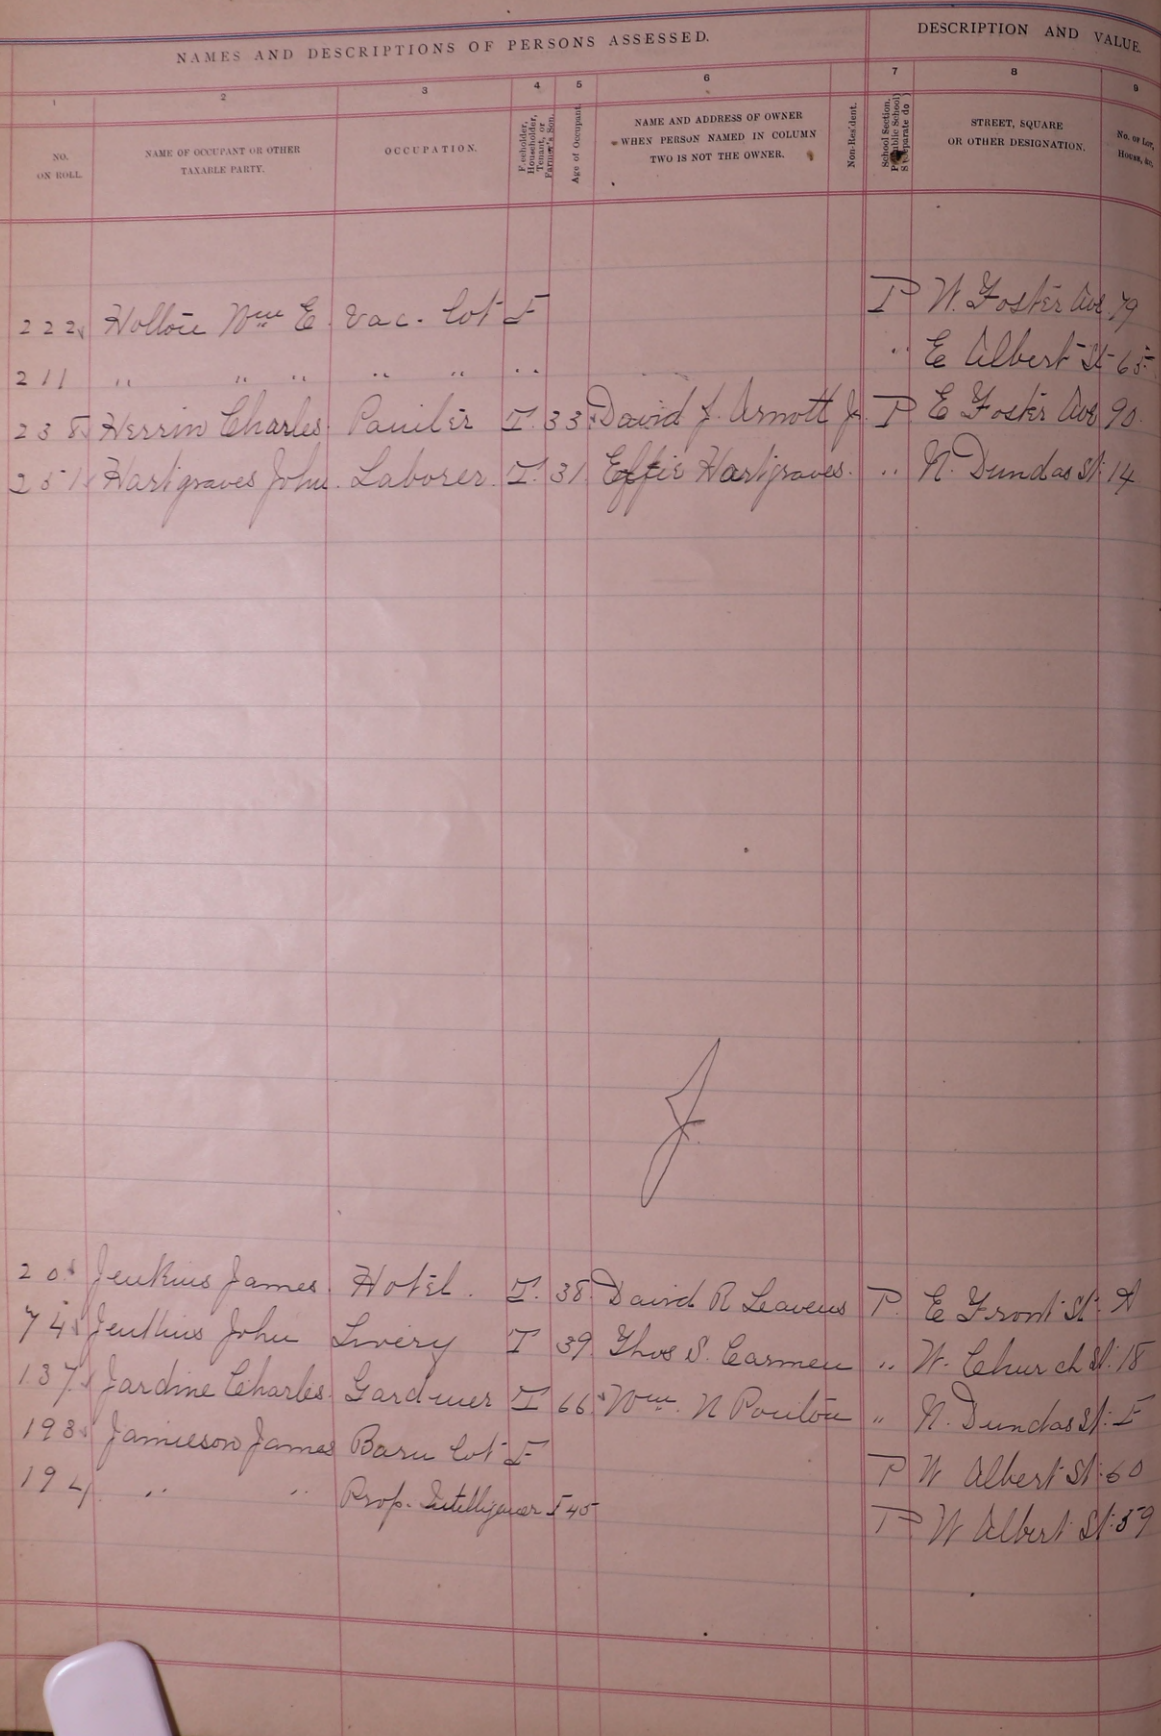 NAMES AND DESCRIPTIONS OF PERSONS ASSESSED. DESCRIPTION AND VALUE
1 2 3 4 5 6 7 8 9
NO. ON ROLL. NAME OF OCCUPANT OR OTHER TAXABLE PARTY. OCCUPATION. Freeholder, Householder, Tenant, or Farmer's Son. Age of Occupant. NAME AND ADDRESS OF OWNER WHEN PERSON NAMED IN COLUMN TWO IS NOT THE OWNER. Non-Resident. School Section, Public School Separate do STREET, SQUARE OR OTHER DESIGNATION. No. of Lot, House, &c.
222 Holton Wm E. Vac. Lot F P W. Foster Ave 79
211 " " " " " " " E Albert St 65
238 Herrin Charles Painter T. 33 David J. Arnott Jr. P E Foster Ave 90
251 Hartgraves John. Laborer. T. 31 Effie Hartgraves. " N. Dundas St. 14
J
20 Jenkins James. Hotel. T. 38 David R Leavens P. E Front St. A
74 Jenkins John Livery T 39 Thos S. Carmen " W. Church St. 18
137 Jardine Charles. Gardner T 66 Wm. N Poulton " N. Dundas St. F
193 Jamieson James Barn Lot F P W Albert St. 60
194 " " Prop. Intelligencer F 45 P W Albert St. 59